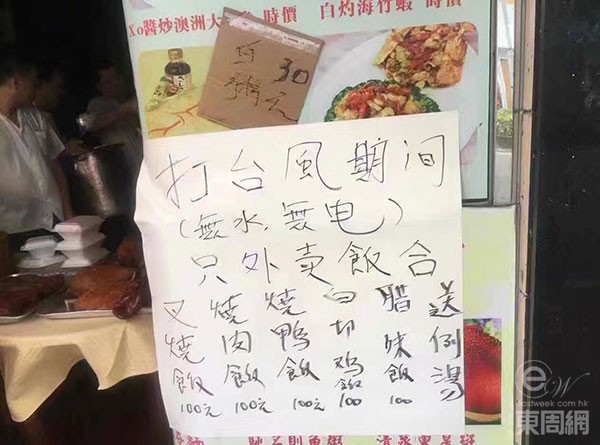 Xo醬炒澳洲大 時價 白灼海竹蝦 時價
白粥 30元
打台風期间
(無水,無电)
只外卖飯合
叉燒飯 100元
燒肉飯 100元
燒鴨飯 100元
白切鸡飯 100
腊味飯 100
送例湯
ew
eastweek.com.hk
東周網